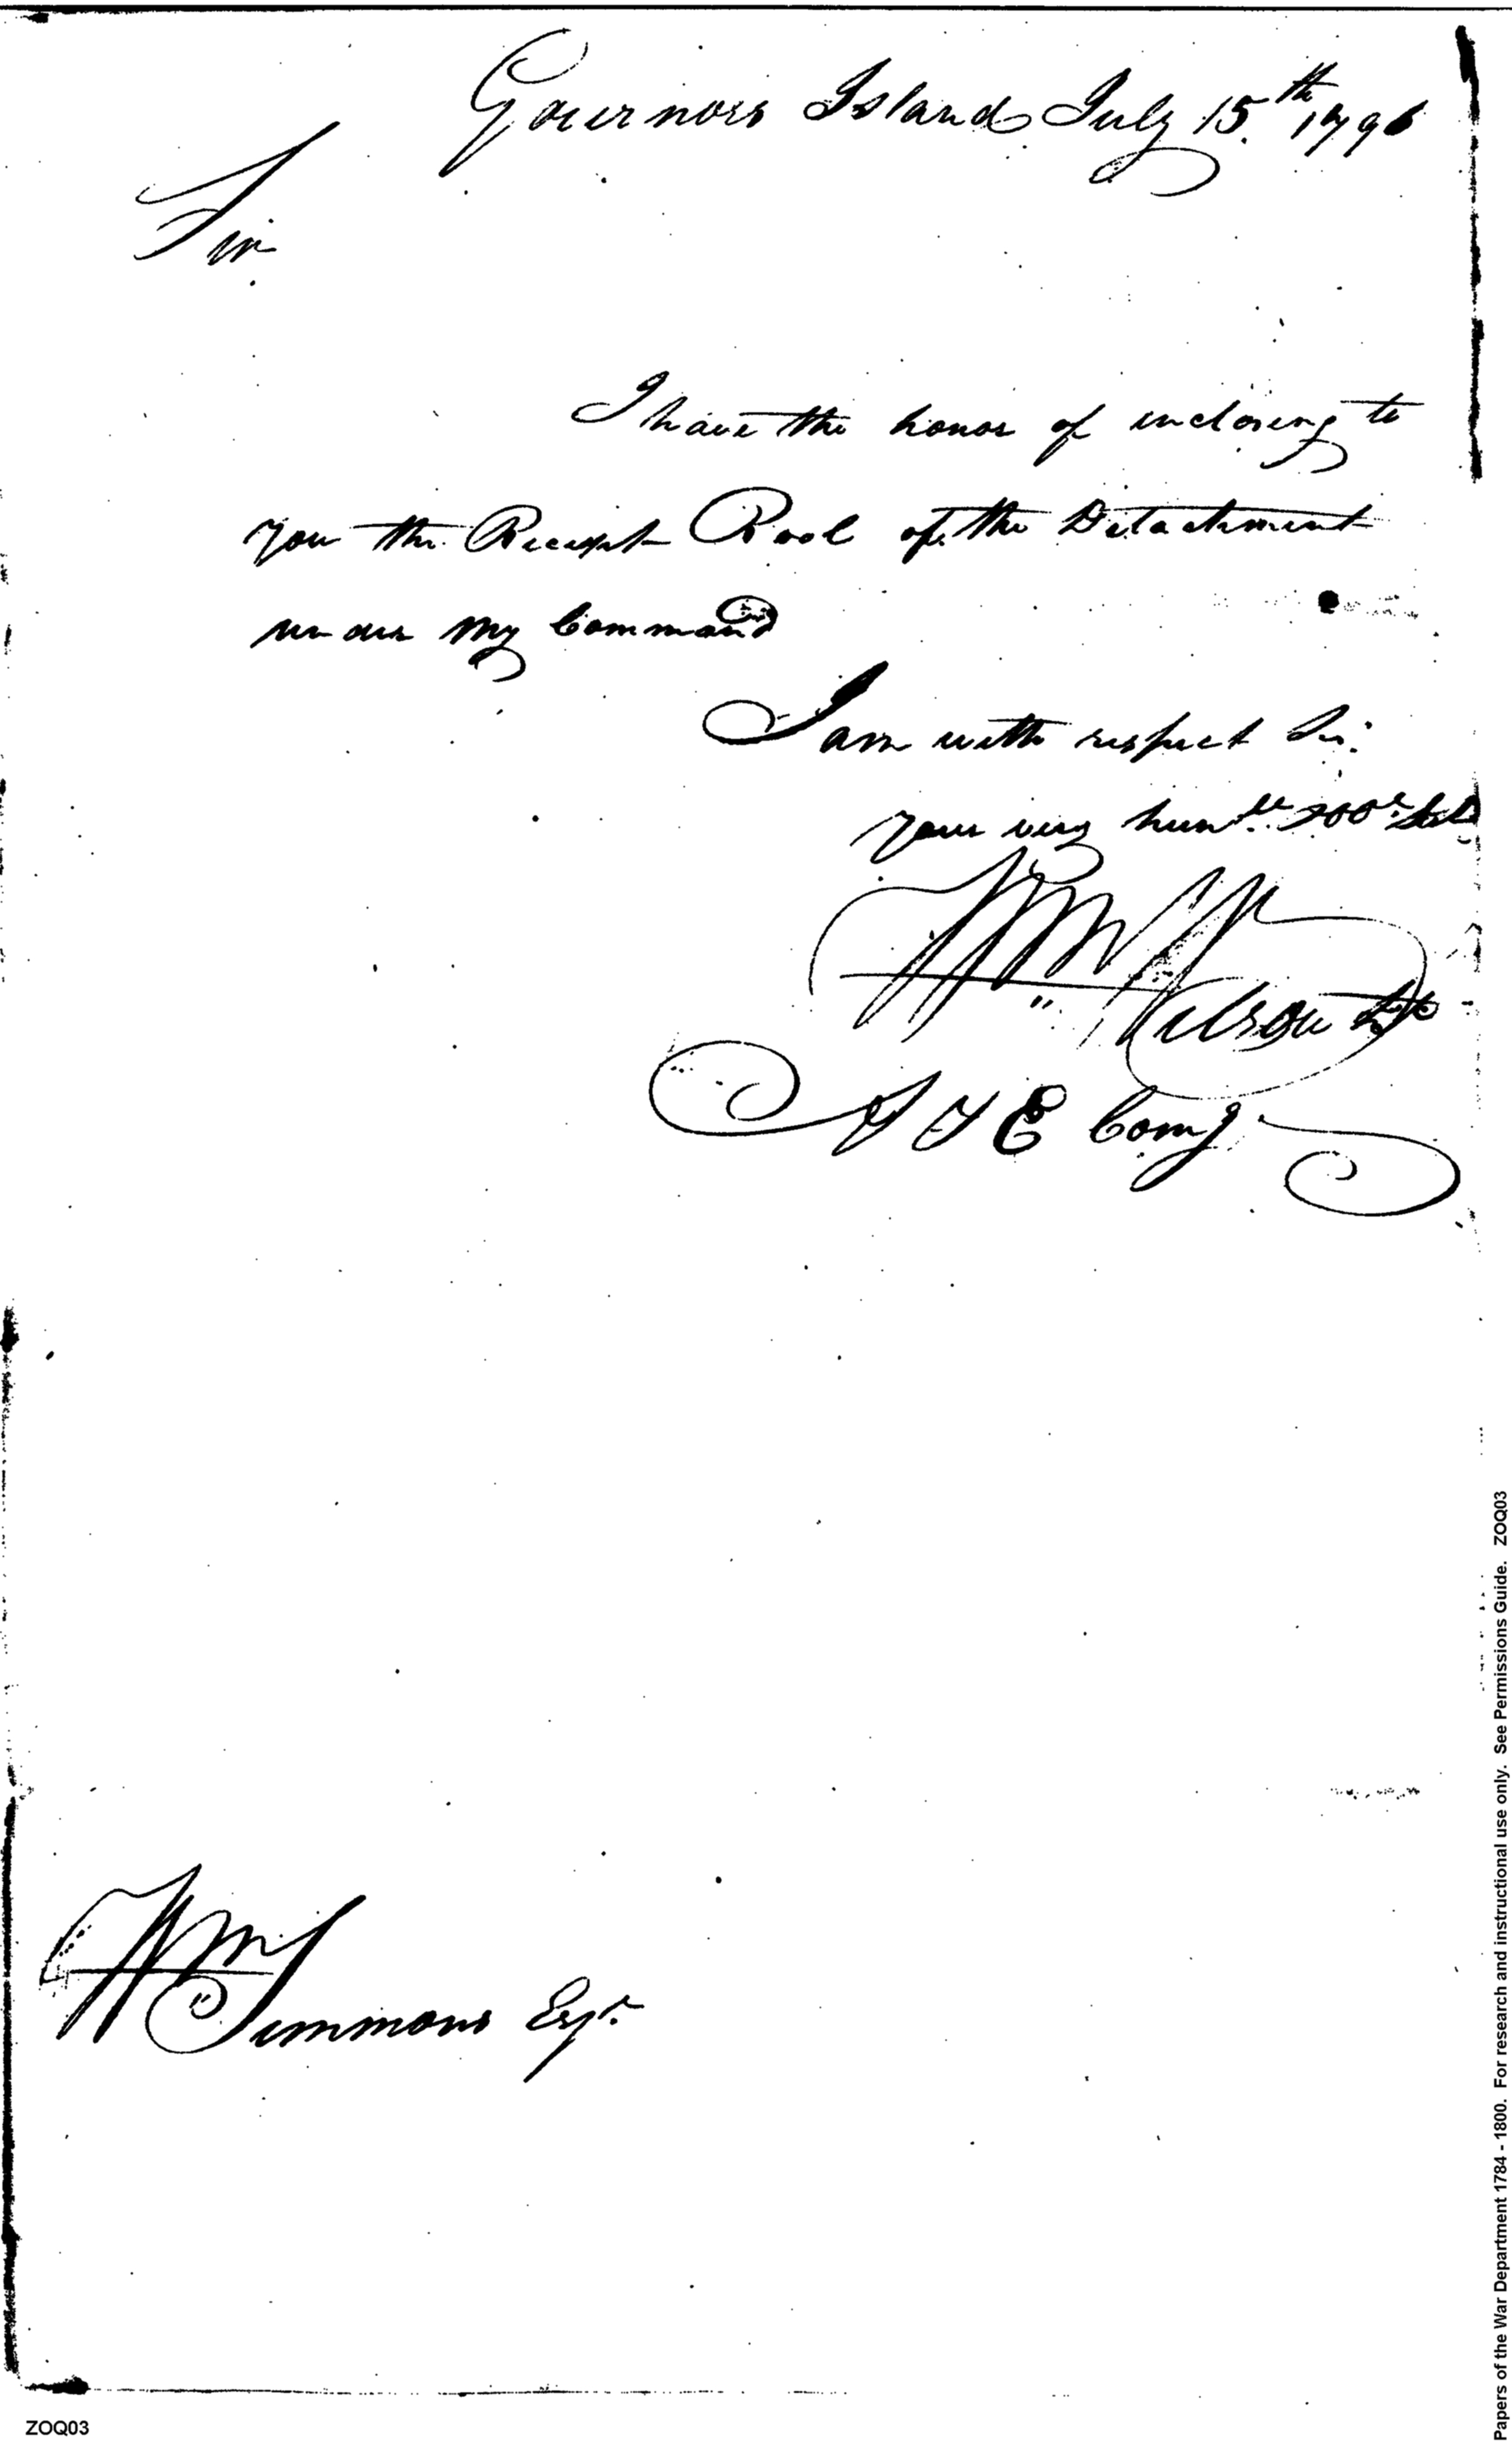 Governors Island July 15.th 1796
Sir
I have the honor of inclosing to
you the Receipt Rool of the Detachment
under my Command
I am with respect Sir.
your very humble
Wm Wilson Lt
A & E Comg
Wm Simmons Esqr.
ZOQ03
Papers of the War Department 1784 - 1800. For research and instructional use only. See Permissions Guide. ZOQ03